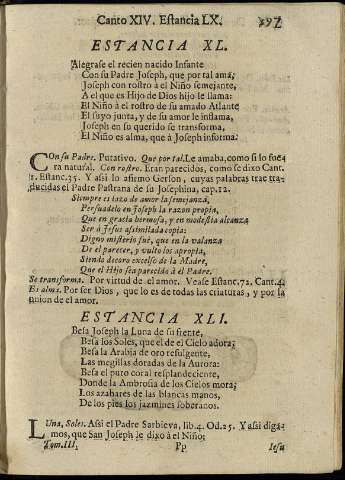 Canto XIV. Estancia LX. 597
ESTANCIA XL.
Alegrase el recien nacido Infante
Con su Padre Joseph, que por tal ama,
Joseph con rostro a el Niño semejante,
A el que es Hijo de Dios hijo le llama:
El Niño à el rostro de su amado Atlante
El suyo junta, y de su amor le inflama,
Joseph en su querido se transforma,
El Niño es alma, que à Joseph informa.
Con su Padre. Putativo. Que por tal. Le amaba, como si lo fue
ra natural. Con rostro. Eran parecidos, como se dixo Cant.
1. Estanc. 35. Y assi lo afirmo Gerson, cuyas palabras trae tra
ducidas el Padre Pastrana de su Josephina, cap. 12.
Siempre es lazo de amor la semejanza,
Persuadelo en Joseph la razon propia,
Que en gracia hermosa, y en modestia alcanza
Ser à Jesus assimilada copia:
Digno misterio fuè, que en la valanza
De el parecer, y vulto los apropia,
Siendo decoro excelso de la Madre,
Que el Hijo sea parecido à el Padre.
Se transforma. Por virtud de el amor. Vease Estanc. 72. Cant. 4.
Es alma. Por ser Dios, que lo es de todas las criaturas, y por la
union de el amor.
ESTANCIA XLI.
Besa Joseph la Luna de su frente,
Besa los Soles, que el de el Cielo adora;
Besa la Arabia de oro refulgente,
Las megillas doradas de la Aurora:
Besa el puro coral resplandeciente,
Donde la Ambrosia de los Cielos mora;
Los azahares de las blancas manos,
De los pies los jazmines soberanos.
Luna, Soles. Assi el Padre Sarbieva, lib. 4. Od. 25. Y assi diga-
mos, que San Joseph le dixo à el Niño;
Tom. III. Pp Iesu